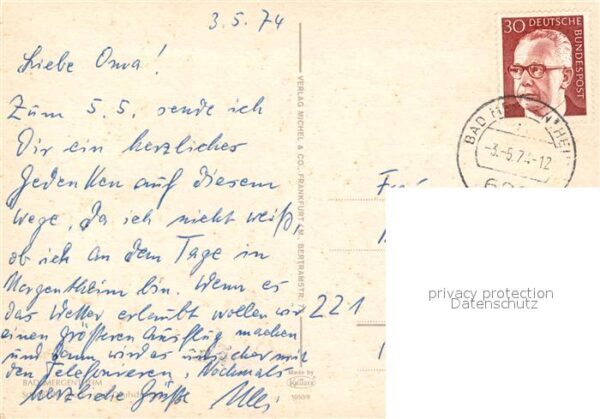 3.5.74
Liebe Oma!
Zum 5.5. sende ich
Dir ein herzliches
Gedenken auf diesem
Wege, da ich nicht weiß,
ob ich an dem Tage in
Mergentheim bin. Wenn es
das Wetter erlaubt wollen wir
einen größeren Ausflug machen
und dann wird es mit
den Telefonieren, Nochmals
herzliche Grüße
BAD MERGENTHEIM
VERLAG MICHEL & CO., FRANKFURT/M., BERTRAMSTR.
30 DEUTSCHE
BUNDESPOST
BAD M
-3.-5.74-12
221
privacy protection
Datenschutz
Made by